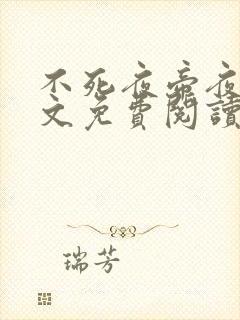 不死夜帝夜
文免費閱讀
瑞芳